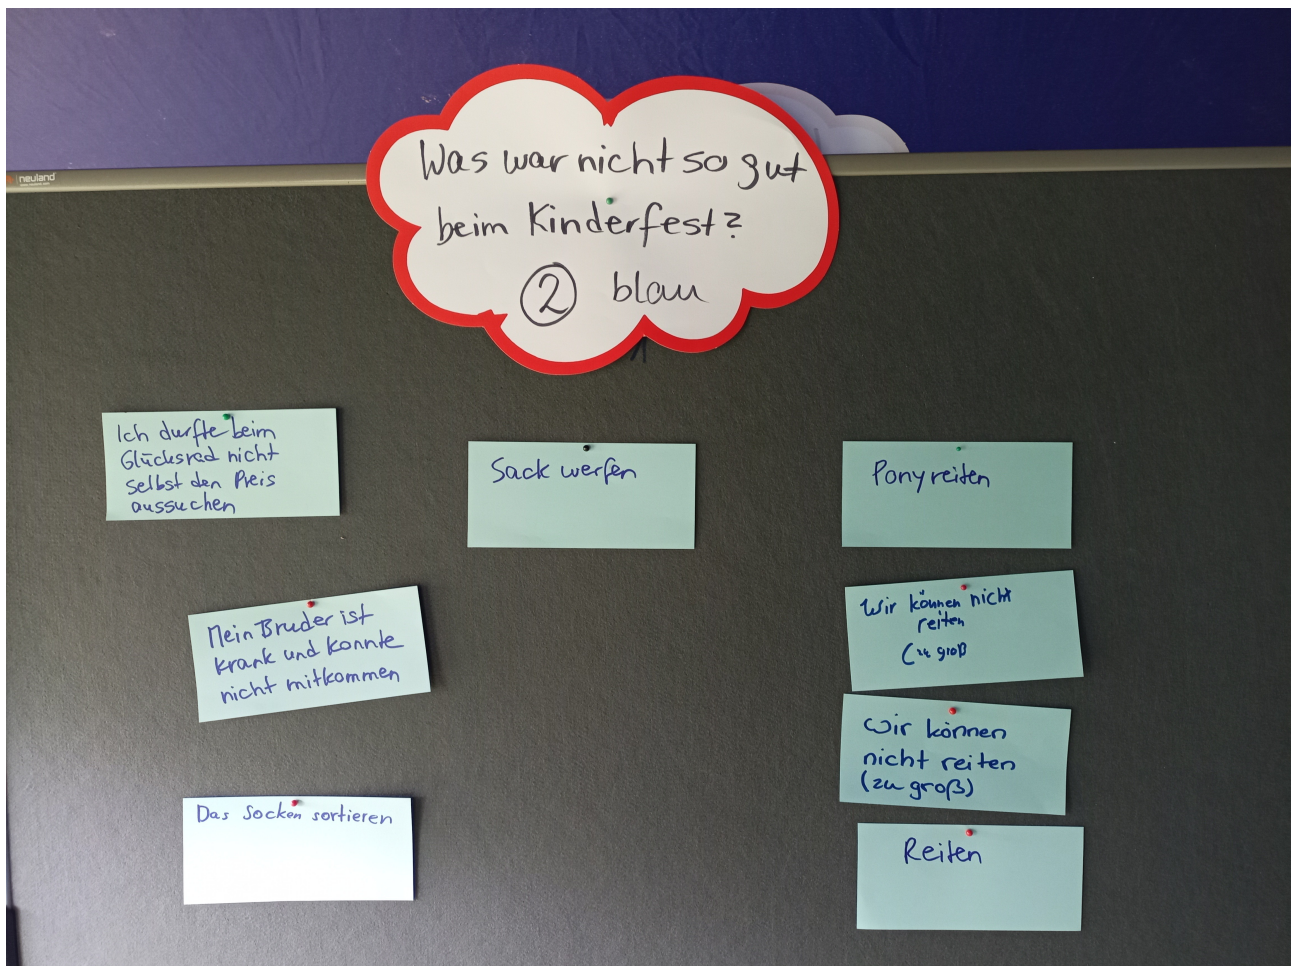 neuland
Was war nicht so gut
beim Kinderfest?
2 blau
Ich durfte beim
Glücksrad nicht
selbst den Preis
aussuchen
Mein Bruder ist
krank und konnte
nicht mitkommen
Das Socken sortieren
Sack werfen
Ponyreiten
Wir können nicht
reiten
(zu groß
Wir können
nicht reiten
(zu groß)
Reiten